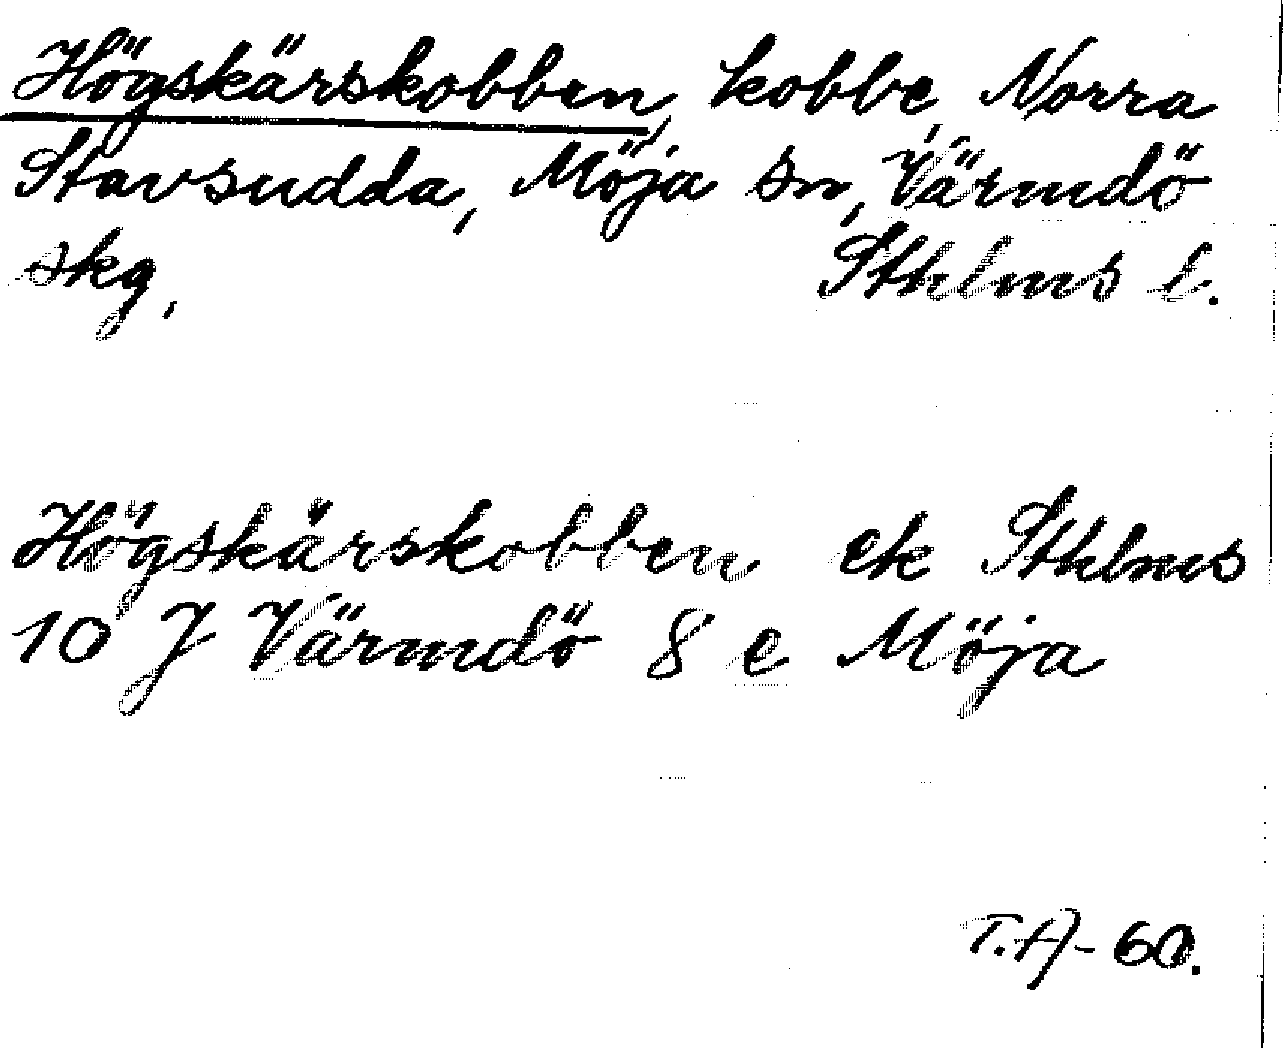 Högskärskobben, kobbe, Norra
Stavsudda, Möja sn, Värmdö
skg, Sthlms l.
Högskärskobben ek Sthlms
10 J Värmdö 8 e Möja
T.A-60.